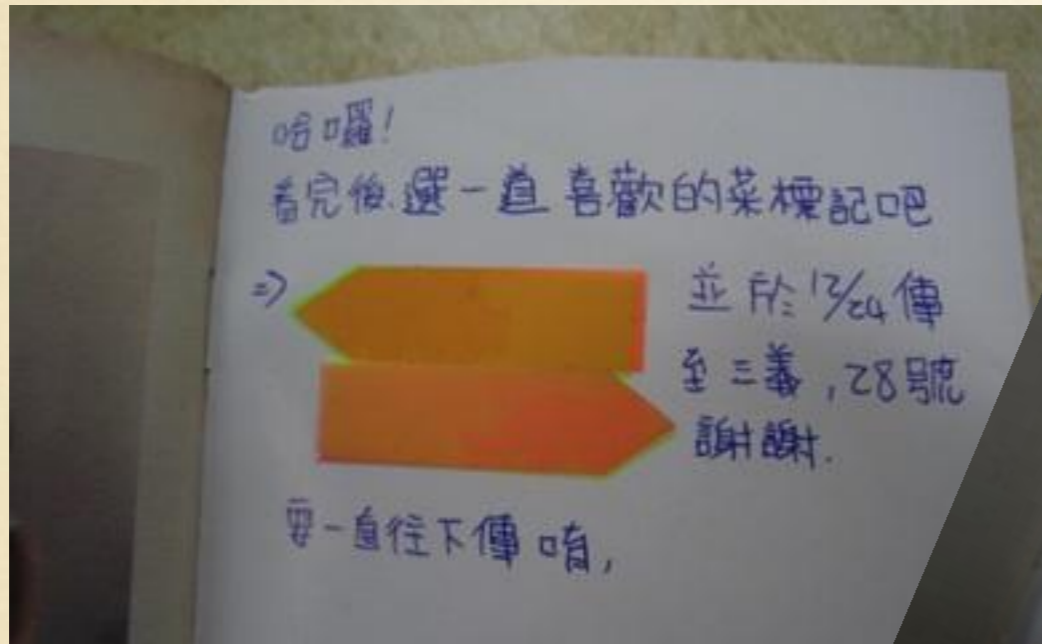 哈囉!
看完後,選一道喜歡的菜標記吧
=> 並於12/24傳
至三義,28號
謝謝.
要一直往下傳唷,